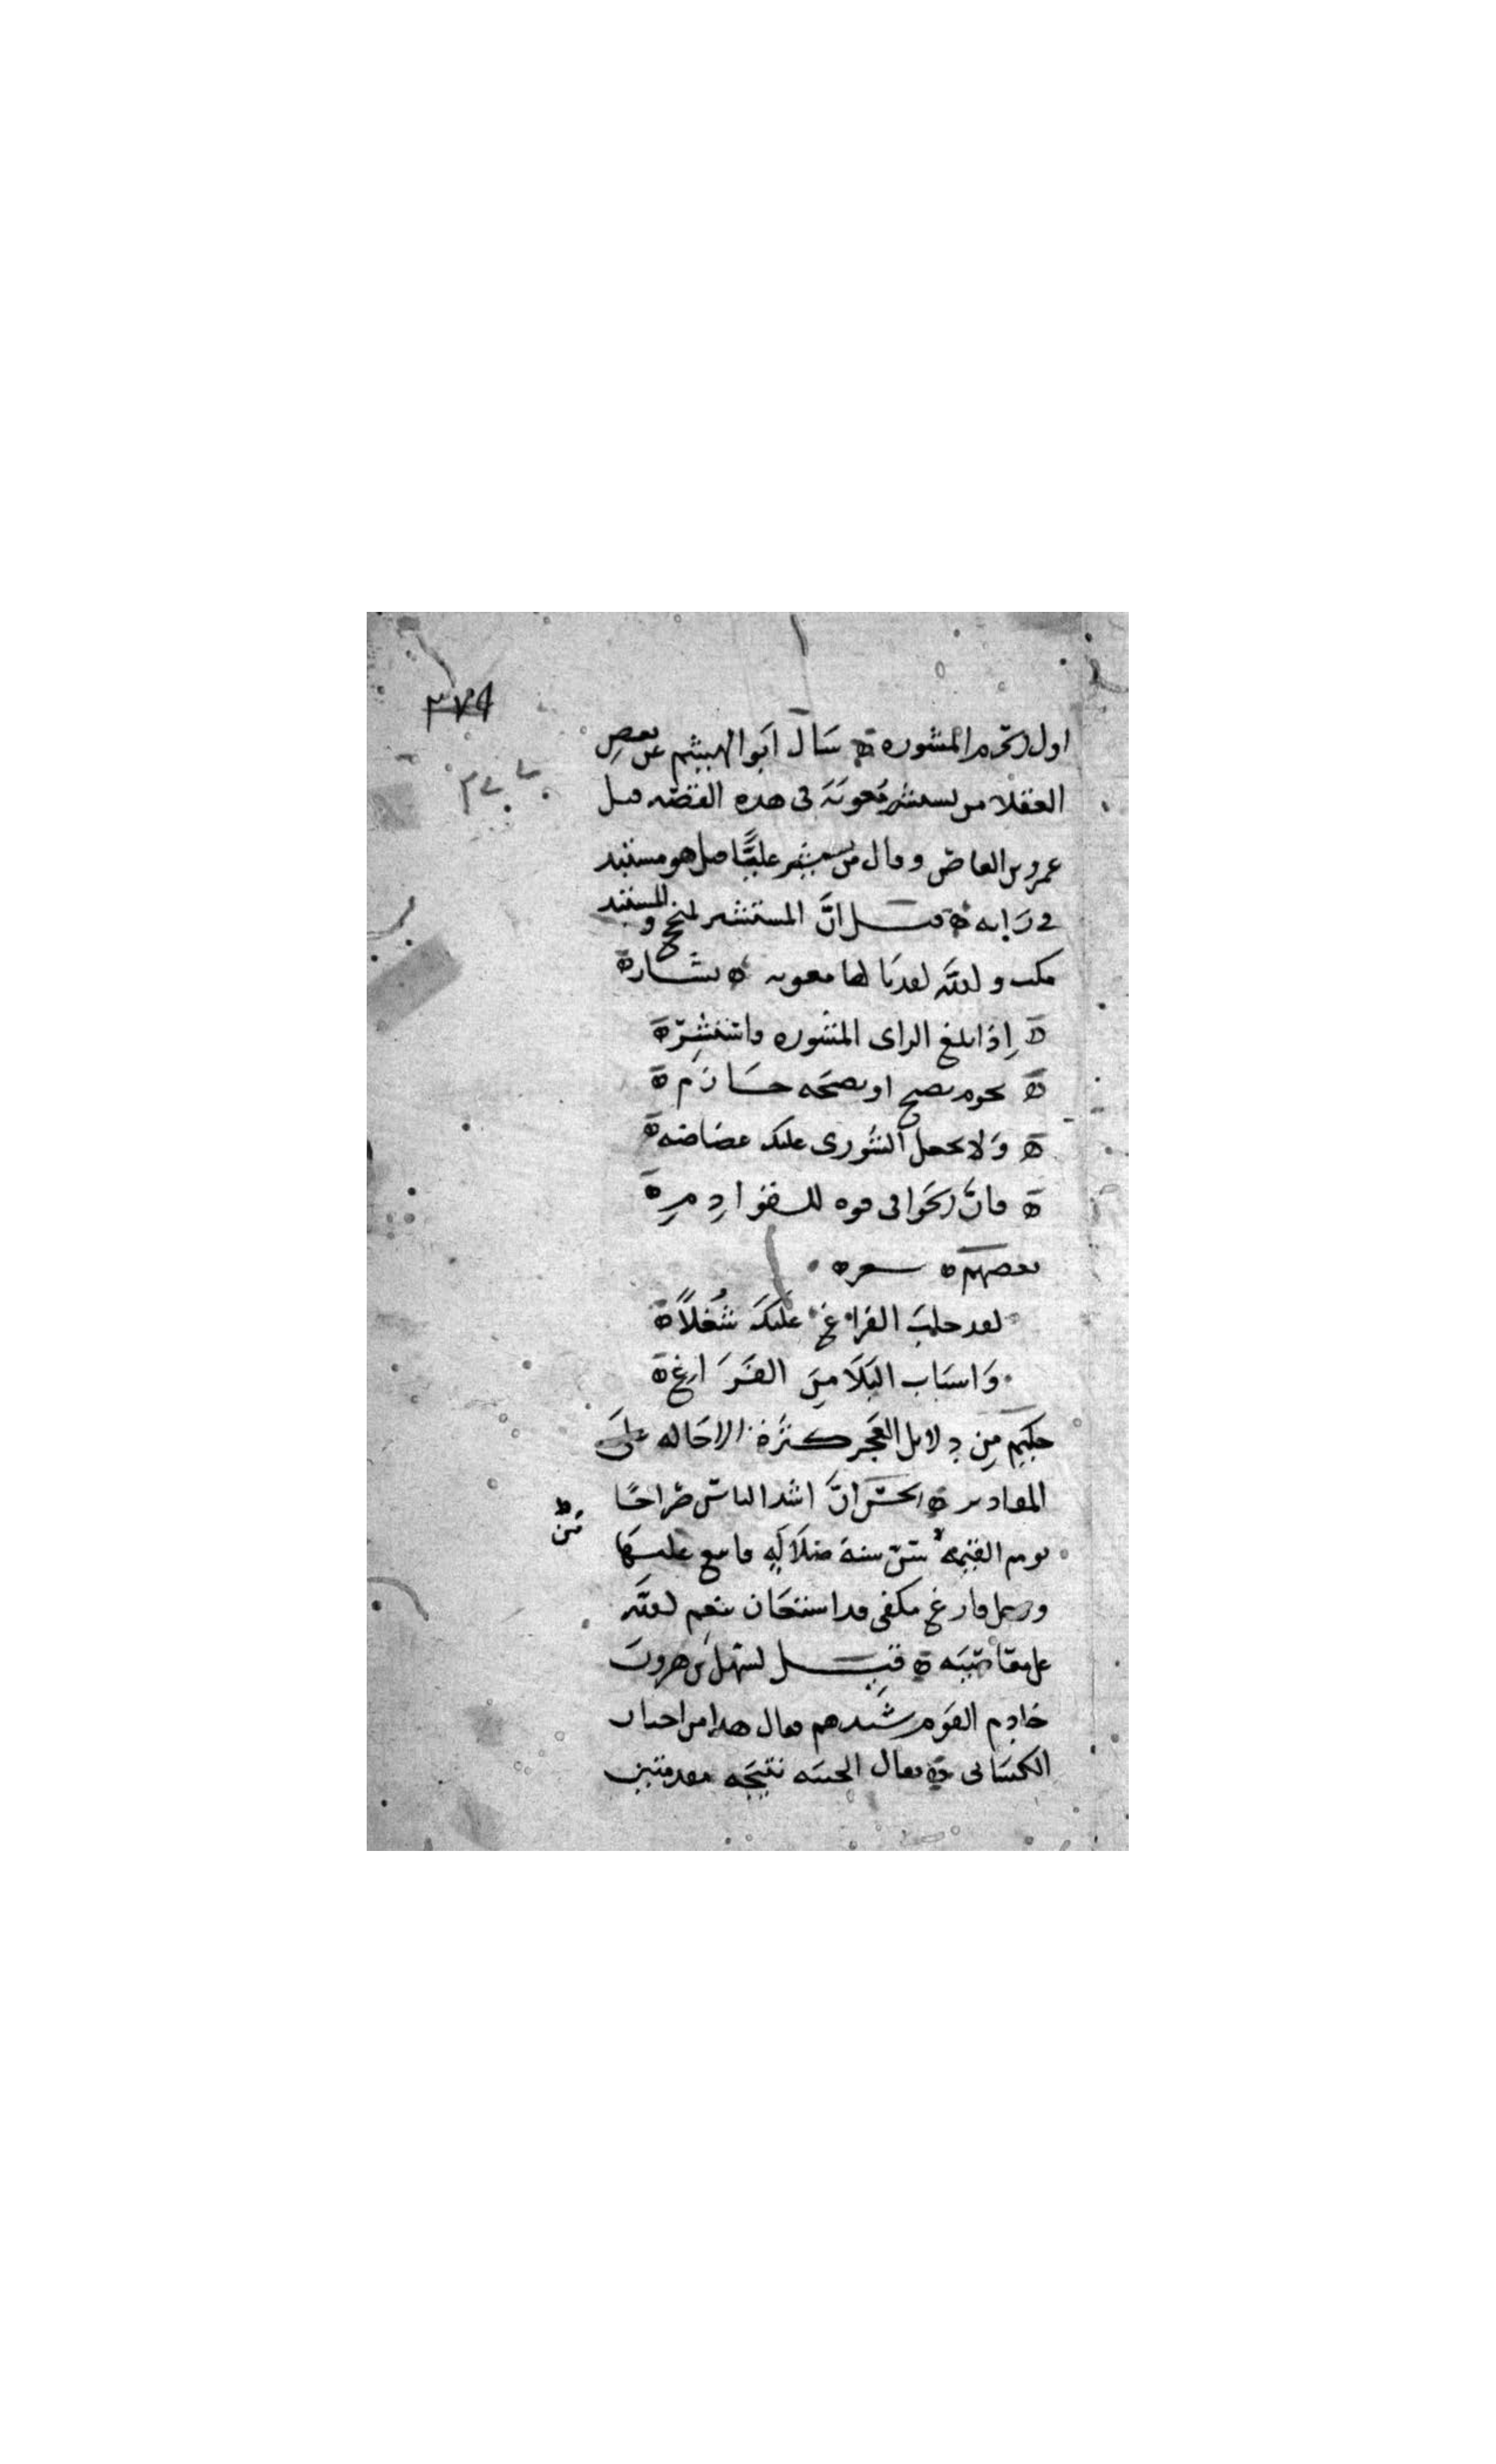 ٣٧٩
اول الحزم المشوره ه سال ابو الهيثم عن بعض
العقلا من يستشير معوية فى هذه القصه قيل
عمرو بن العاص وقال من يستشير عليا قيل هو مستبد
برايه ه قيل ان المستشير لمنجح والمستبد
ولقد لها معويه ه بشار ه
ه اذا بلغ الراى المشوره فاستشر ه
ه بحزم نصيح او نصيحه حازم ه
ه ولا تجعل الشورى عليك غضاضه ه
ه فان الخوافى قوه للقوادم ه
بعضهم ه شعر ه
لقد جلب الفراغ عليك شغلا ه
واسباب البلا من الفراغ ه
حكيم من دلايل العجز كثرة الاحاله على
المقادير ه الحسن ان اشد الناس صراخا
يوم القيمه سن سنة ضلاله فاتبع عليها
من
ورجل فارغ مكفى قد استعان بنعم الله
على معاصيه ه قيل لسهل بن هرون
خادم القوم سيدهم فقال هذا من اخبار
الكسالى ه يقال الخيبه نتيجه مقدمتين